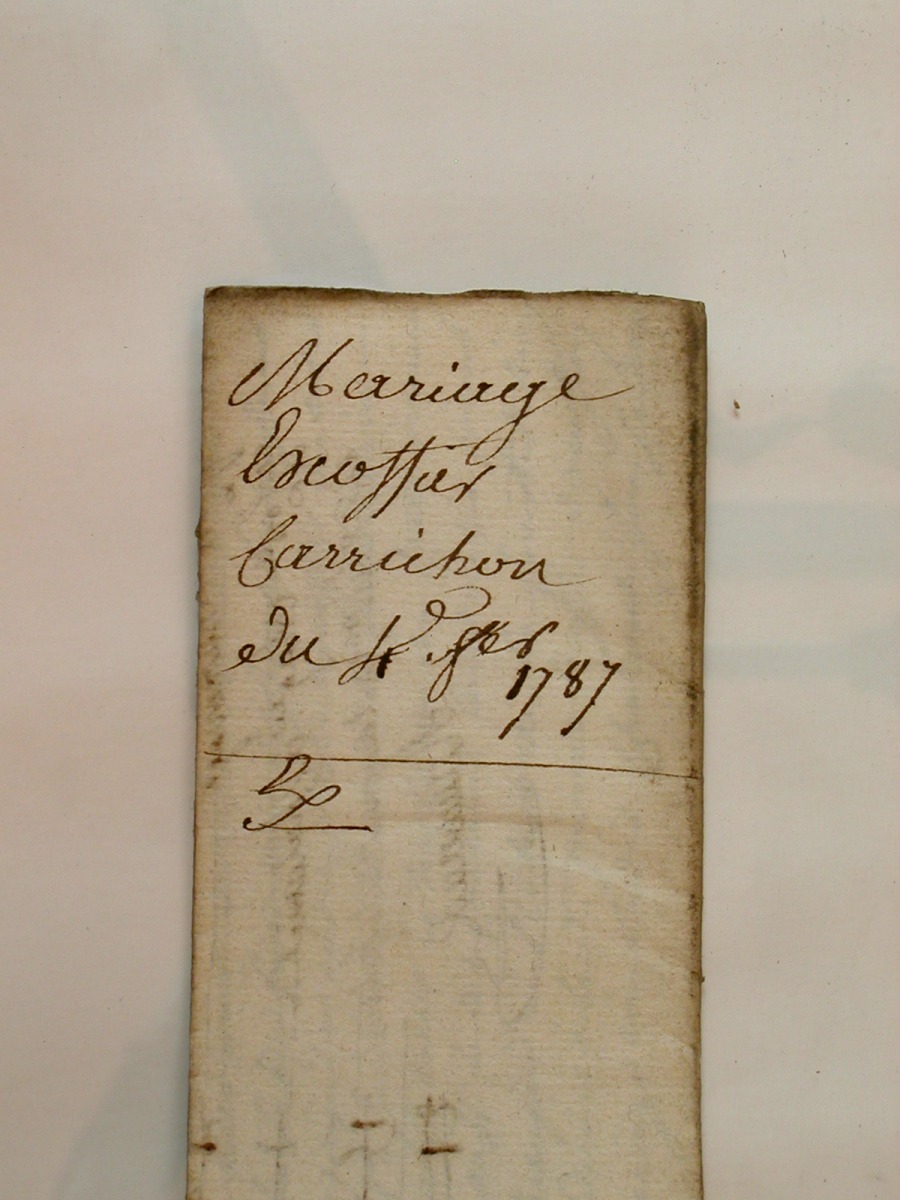 Mariage
Excoffier
Carrichon
du 4e. 9bre
1787